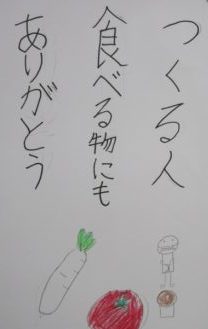 つくる人
食べる物にも
ありがとう